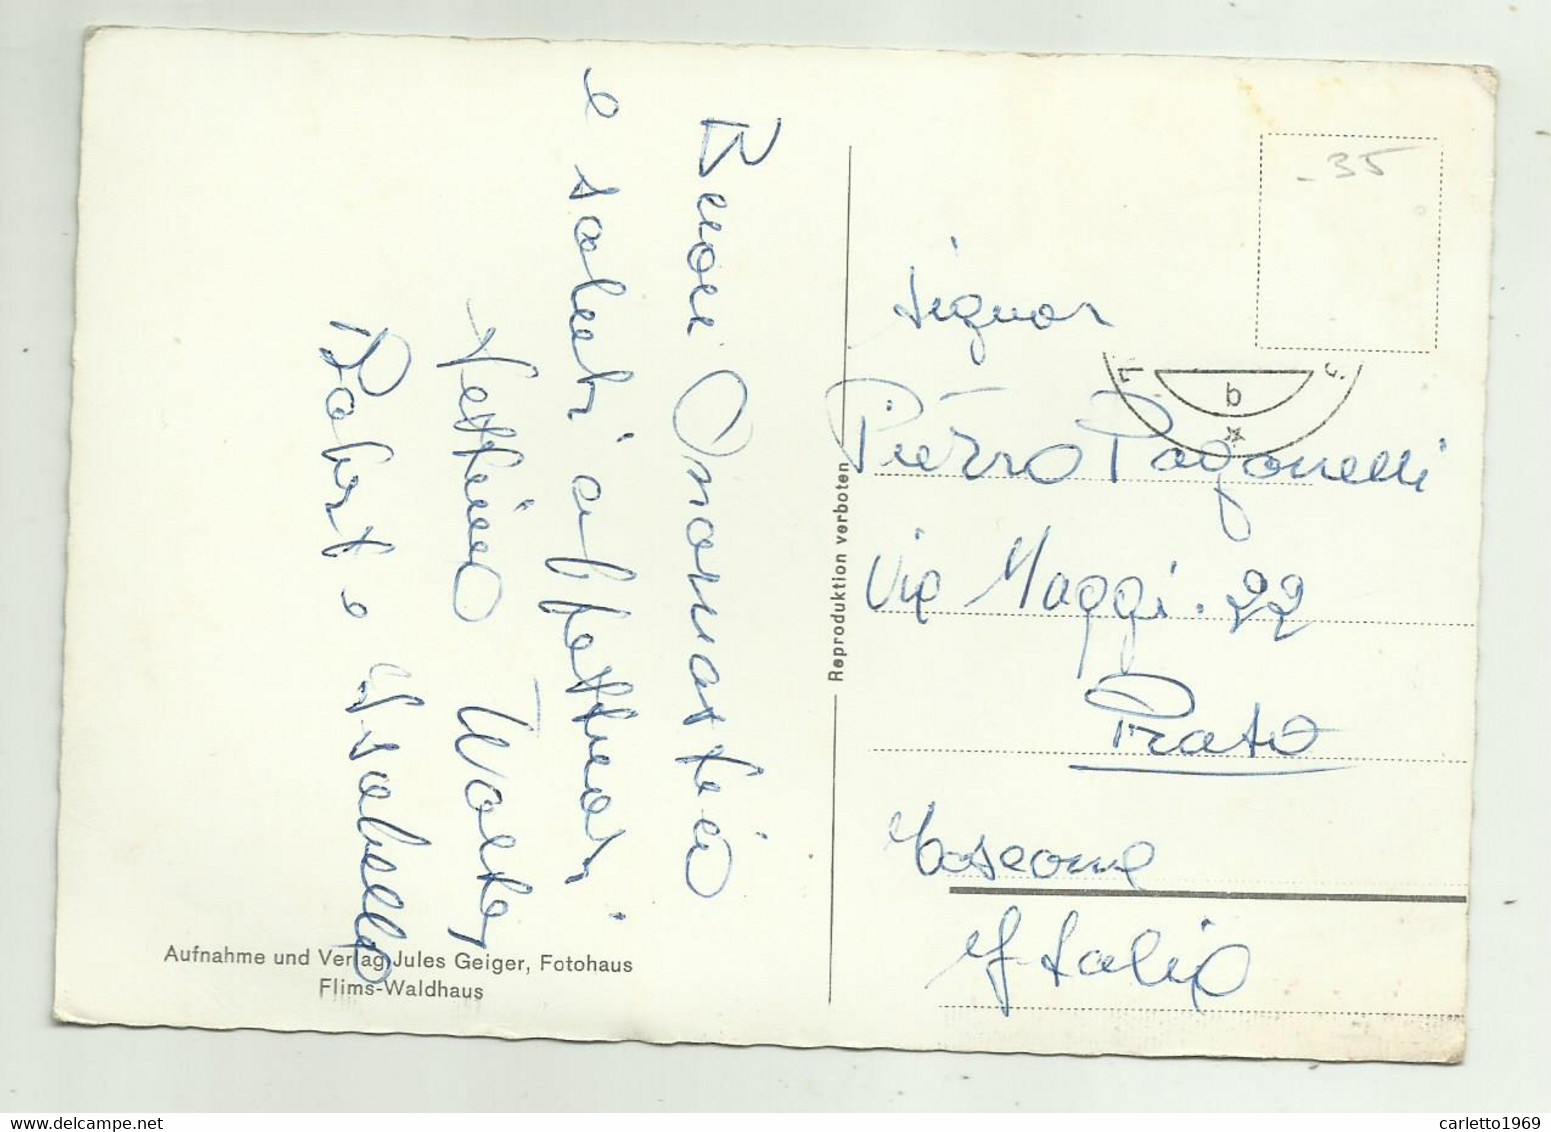 Buon Onomastico
e saluti affettuosi
Nettino Walter
Robert e Isabella
Aufnahme und Verlag Jules Geiger, Fotohaus
Flims-Waldhaus
Reproduktion verboten
-35
b
Signor
Pietro Paganelli
Via Maggi. 22
Prato
Toscana
Italia
carletto1969